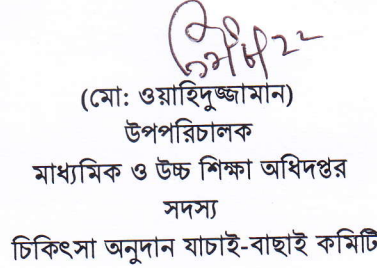 (মো: ওয়াহিদুজ্জামান)
উপপরিচালক
মাধ্যমিক ও উচ্চ শিক্ষা অধিদপ্তর
সদস্য
চিকিৎসা অনুদান যাচাই-বাছাই কমিটি